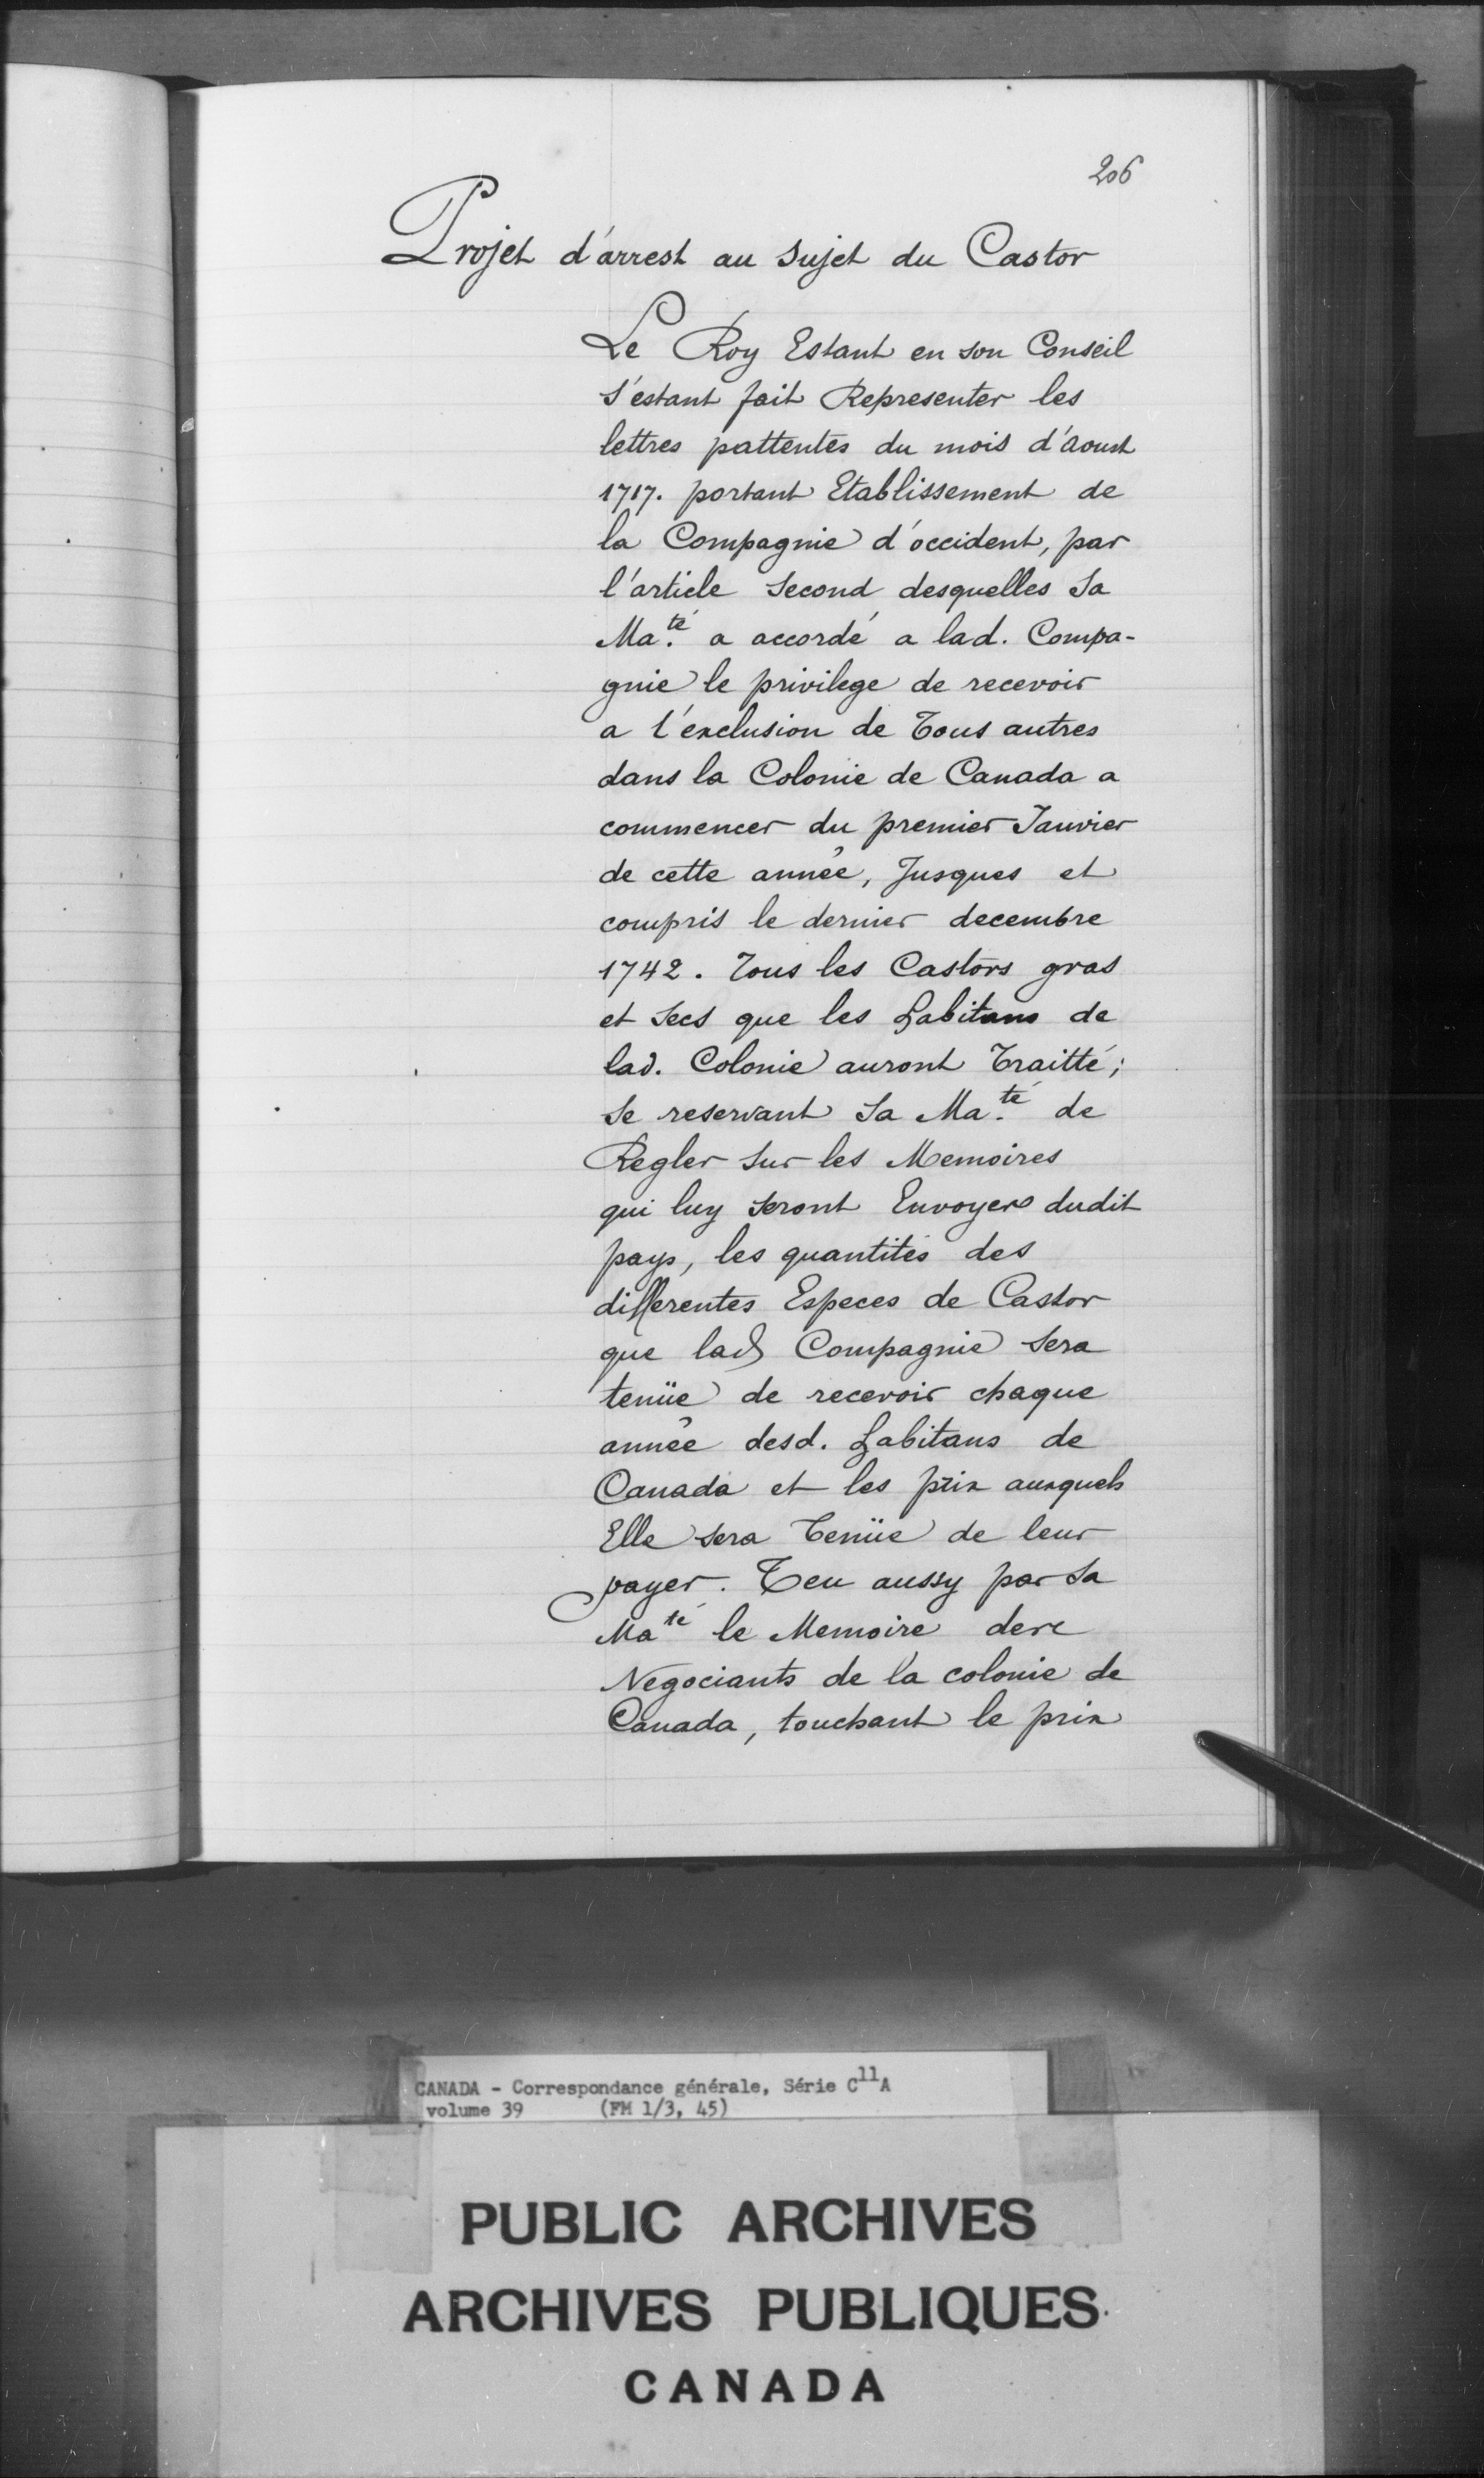 206
Projet d'arrest au Sujet du Castor
Le Roy Estant en son Conseil
s'estant fait Representer les
lettres pattentes du mois d'aoust
1717. portant Etablissement de
la Compagnie d'occident, par
l'article Second desquelles Sa
Ma.té a accordé a lad. Compa-
gnie le privilege de recevoir
a l'exclusion de Tous autres
dans la Colonie de Canada a
commencer du premier Janvier
de cette année, Jusques et
compris le dernier decembre
1742. Tous les Castors gras
et Secs que les habitans de
lad. Colonie auront Traitté;
Se reservant Sa Ma.té de
Regler Sur les Memoires
qui luy Seront Envoyers dudit
pays, les quantités des
differentes Especes de Castor
que lad Compagnie Sera
tenüe de recevoir chaque
année desd. habitans de
Canada et les prix auxquels
Elle Sera Tenüe de leur
payer. Veu aussy par Sa
Maté le Memoire
Negociants de la colonie de
Canada, touchant le prix
CANADA - Correspondance générale, Série C11A
volume 39 (FM 1/3, 45)
PUBLIC ARCHIVES
ARCHIVES PUBLIQUES
CANADA